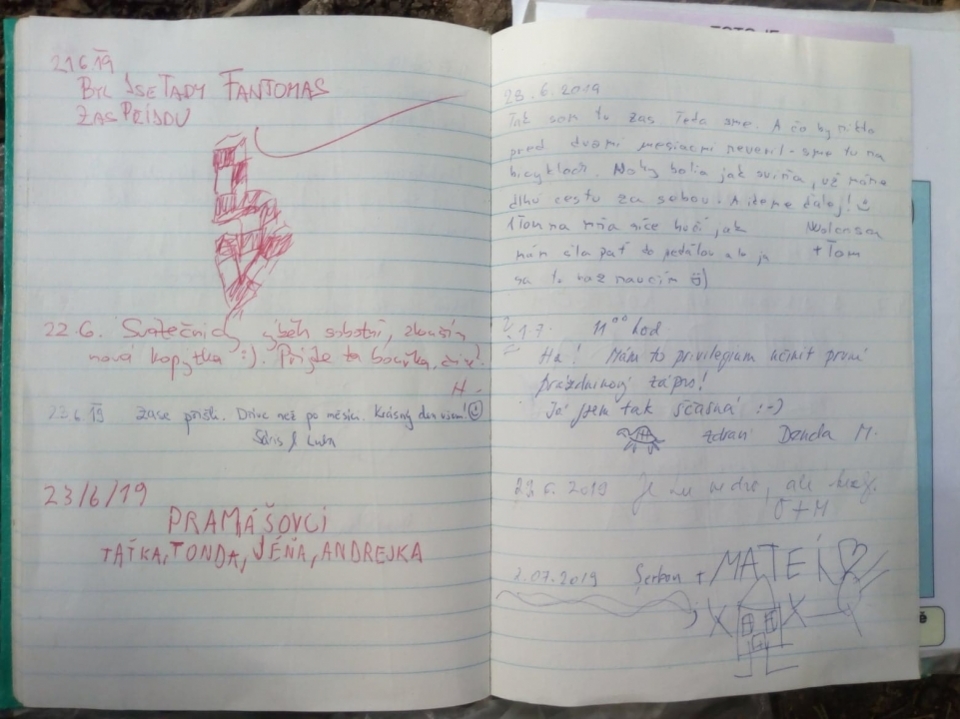 21 6 19
BYL JSE TADY FANTOMAS
ZAS PŘÍJDU
22.6. Svátečník výběh sobotní, zkouším
nová kopytka :). Přijde ta bouřka,
H.
23.6 19 Zase přišli. Dříve než po měsíci. Krásný den všem!
23/6/19
PRAMÁŠOVCI
TAŤKA, TONDA, JÉŇA, ANDREJKA
23.6.2019
Tak som tu zas Teda sme. A čo by nikto
pred dvomi mesiacmi neveril - sme tu na
bicykloch. Nohy bolia jak sviňa, už máme
dlhú cestu za sebou. A ideme ďalej!
(Tom na mňa síce hučí, jak
mám šlapať do pedálov ale ja
+ Tom
sa to raz naučím
1.7. 11⁰⁰ hod
Ha! Mám to privilegium učinit první
prázdninový zápis!
Já jsem tak šťastná :-)
zdraví Danda M.
2019 Je ale
+ M
2.07.2019 + MATEJ
TOTO JE